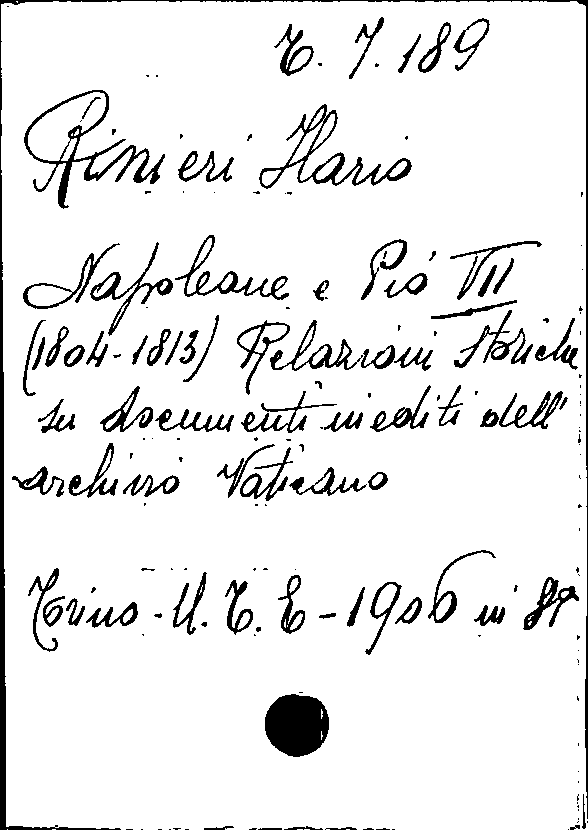 T. 7. 189
Rinieri Ilario
Napoleone e Pio VII
(1804-1813) Relazioni storiche
su documenti inediti dell'
archivio Vaticano
Torino - U. T. E - 1906 in 8º